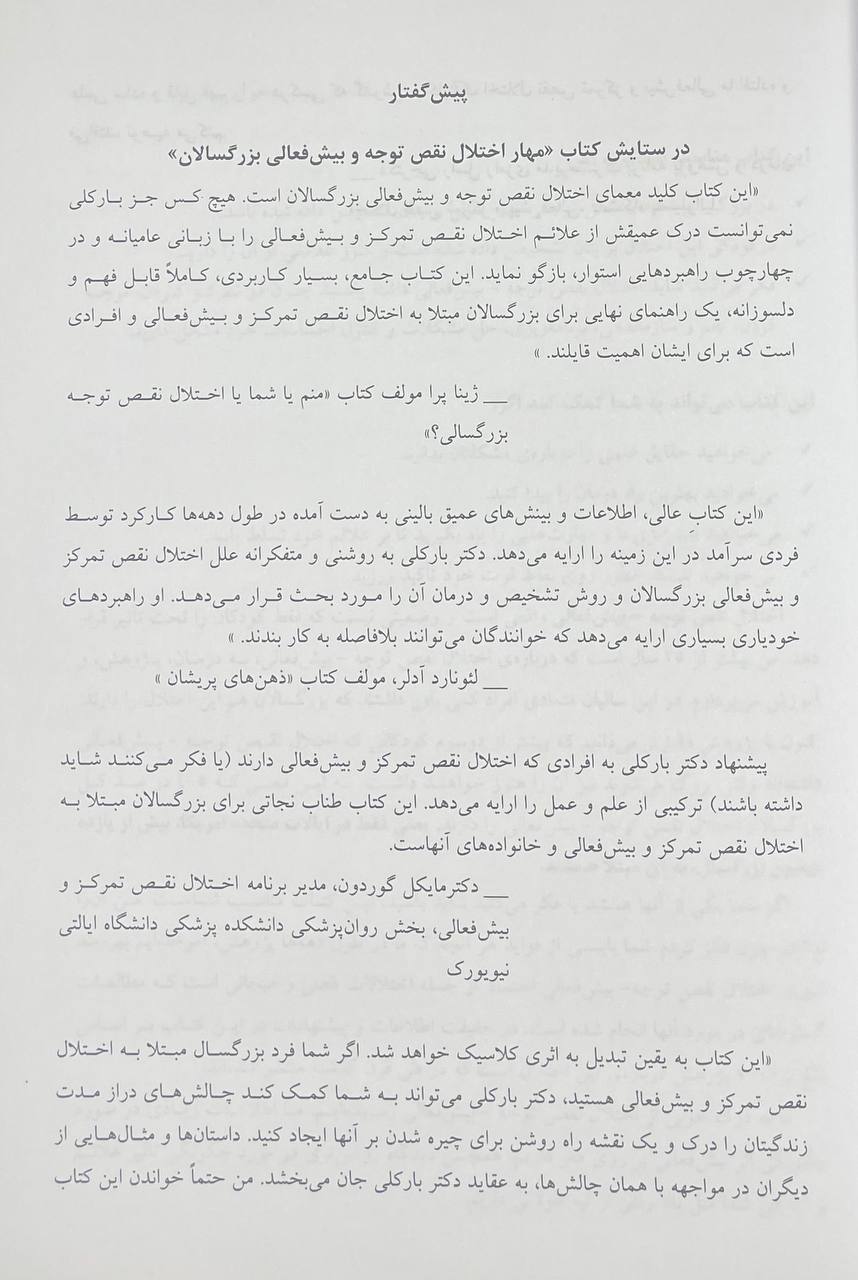 پیش‌گفتار
در ستایش کتاب «مهار اختلال نقص توجه و بیش‌فعالی بزرگسالان»
«این کتاب کلید معمای اختلال نقص توجه و بیش‌فعالی بزرگسالان است. هیچ کس جز بارکلی
نمی‌توانست درک عمیقش از علائم اختلال نقص تمرکز و بیش‌فعالی را با زبانی عامیانه و در
چهارچوب راهبردهایی استوار، بازگو نماید. این کتاب جامع، بسیار کاربردی، کاملاً قابل فهم و
دلسوزانه، یک راهنمای نهایی برای بزرگسالان مبتلا به اختلال نقص تمرکز و بیش‌فعالی و افرادی
است که برای ایشان اهمیت قایلند. »
__ ژینا پرا مولف کتاب «منم یا شما یا اختلال نقص توجه
بزرگسالی؟»
«این کتابِ عالی، اطلاعات و بینش‌های عمیق بالینی به دست آمده در طول دهه‌ها کارکرد توسط
فردی سرآمد در این زمینه را ارایه می‌دهد. دکتر بارکلی به روشنی و متفکرانه علل اختلال نقص تمرکز
و بیش‌فعالی بزرگسالان و روش تشخیص و درمان آن را مورد بحث قرار می‌دهد. او راهبردهای
خودیاری بسیاری ارایه می‌دهد که خوانندگان می‌توانند بلافاصله به کار بندند. »
__ لئونارد آدلر، مولف کتاب «ذهن‌های پریشان »
پیشنهاد دکتر بارکلی به افرادی که اختلال نقص تمرکز و بیش‌فعالی دارند (یا فکر می‌کنند شاید
داشته باشند) ترکیبی از علم و عمل را ارایه می‌دهد. این کتاب طناب نجاتی برای بزرگسالان مبتلا به
اختلال نقص تمرکز و بیش‌فعالی و خانواده‌های آنهاست.
__ دکترمایکل گوردون، مدیر برنامه اختلال نقص تمرکز و
بیش‌فعالی، بخش روان‌پزشکی دانشکده پزشکی دانشگاه ایالتی
نیویورک
«این کتاب به یقین تبدیل به اثری کلاسیک خواهد شد. اگر شما فرد بزرگسال مبتلا به اختلال
نقص تمرکز و بیش‌فعالی هستید، دکتر بارکلی می‌تواند به شما کمک کند چالش‌های دراز مدت
زندگیتان را درک و یک نقشه راه روشن برای چیره شدن بر آنها ایجاد کنید. داستان‌ها و مثال‌هایی از
دیگران در مواجهه با همان چالش‌ها، به عقاید دکتر بارکلی جان می‌بخشد. من حتماً خواندن این کتاب